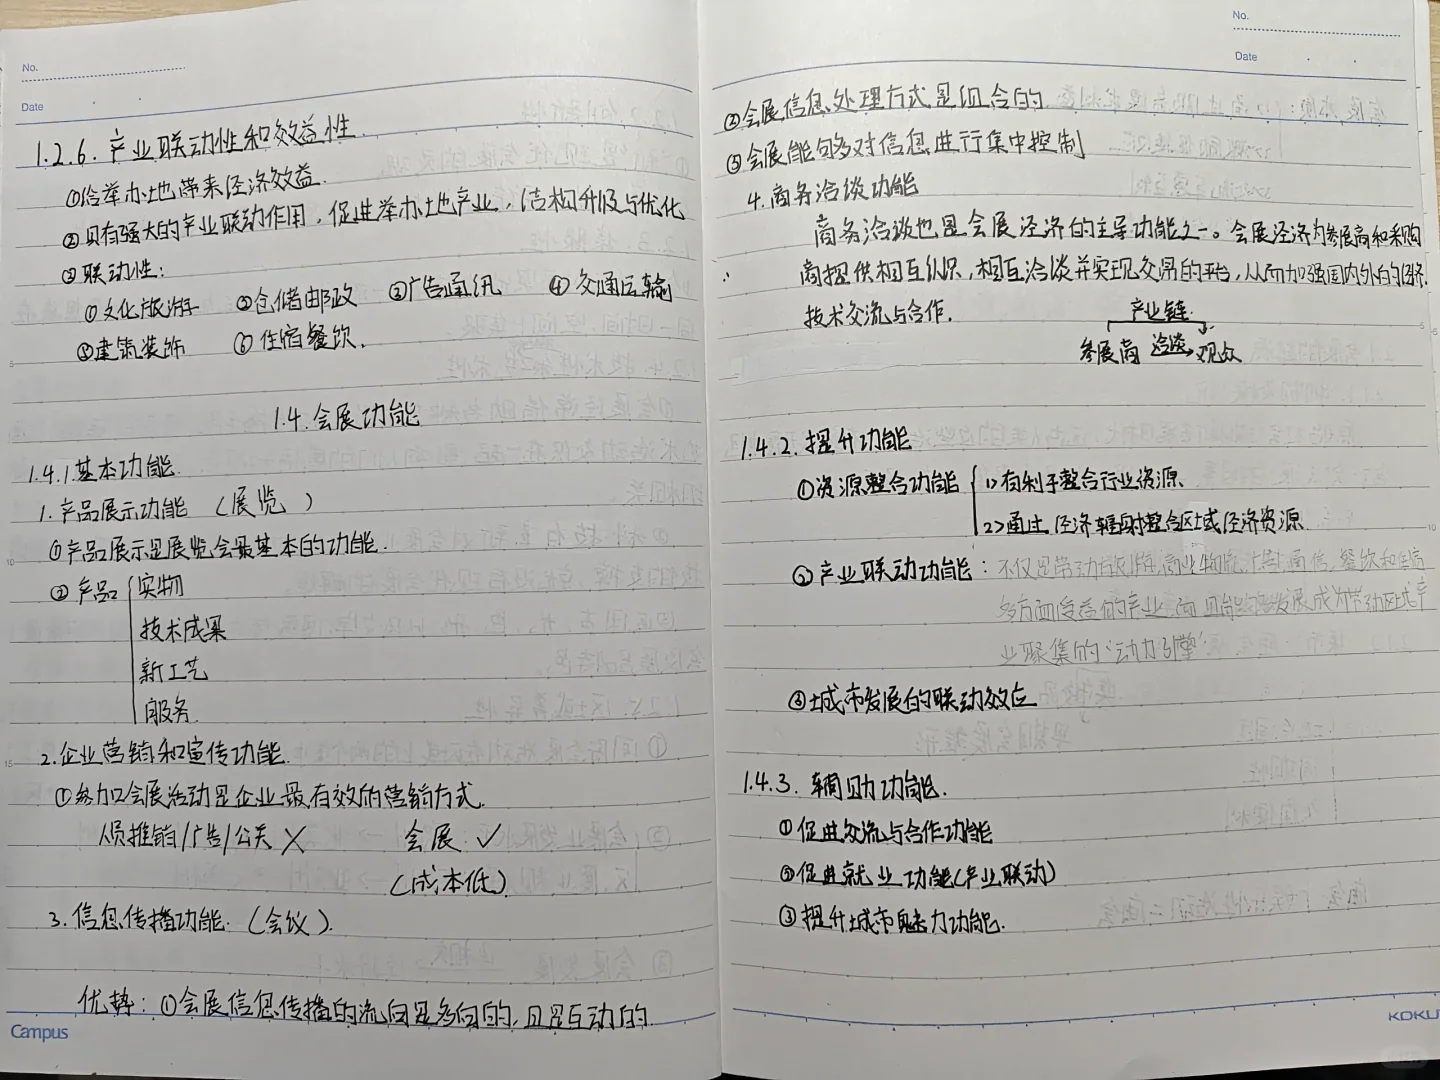 No.
Date
1.2.6. 产业联动性和效益性
①给举办地带来经济效益.
②具有强大的产业联动作用，促进举办地产业，结构升级与优化
③联动性：
①文化旅游 ②仓储邮政 ③广告通讯 ④交通运输
⑤建筑装饰 ⑥住宿餐饮.
1.4.会展功能
1.4.1基本功能.
1.产品展示功能 （展览）
①产品展示是展览会最基本的功能.
②产品 实物
技术成果
新工艺
服务.
2.企业营销和宣传功能.
①参加会展活动是企业最有效的营销方式.
人员推销/广告/公关 ✗ 会展 ✓
（成本低）
3.信息传播功能.（会议）.
优势：①会展信息传播的流向是多向的，且是互动的.
Campus
No.
Date
②会展信息处理方式是组合的
③会展能够对信息进行集中控制
4.商务洽谈功能
商务洽谈也是会展经济的主导功能之一。会展经济为参展商和采购
商提供相互认识，相互洽谈并实现交易的平台，从而加强国内外的经济.
技术交流与合作.
产业链.
参展商 洽谈→ 观众
1.4.2.提升功能
①资源整合功能 1>有利于整合行业资源.
2>通过经济辐射整合区域经济资源
②产业联动功能：不仅是带动旅游,商业,物流,广告,通信,餐饮和住宿
多方面受益的产业,而且能够发展成为带动区域产
业聚集的“动力引擎”
③城市发展的联动效应
1.4.3.辅助功能.
①促进交流与合作功能
②促进就业功能(产业联动)
③提升城市魅力功能.
KOKU